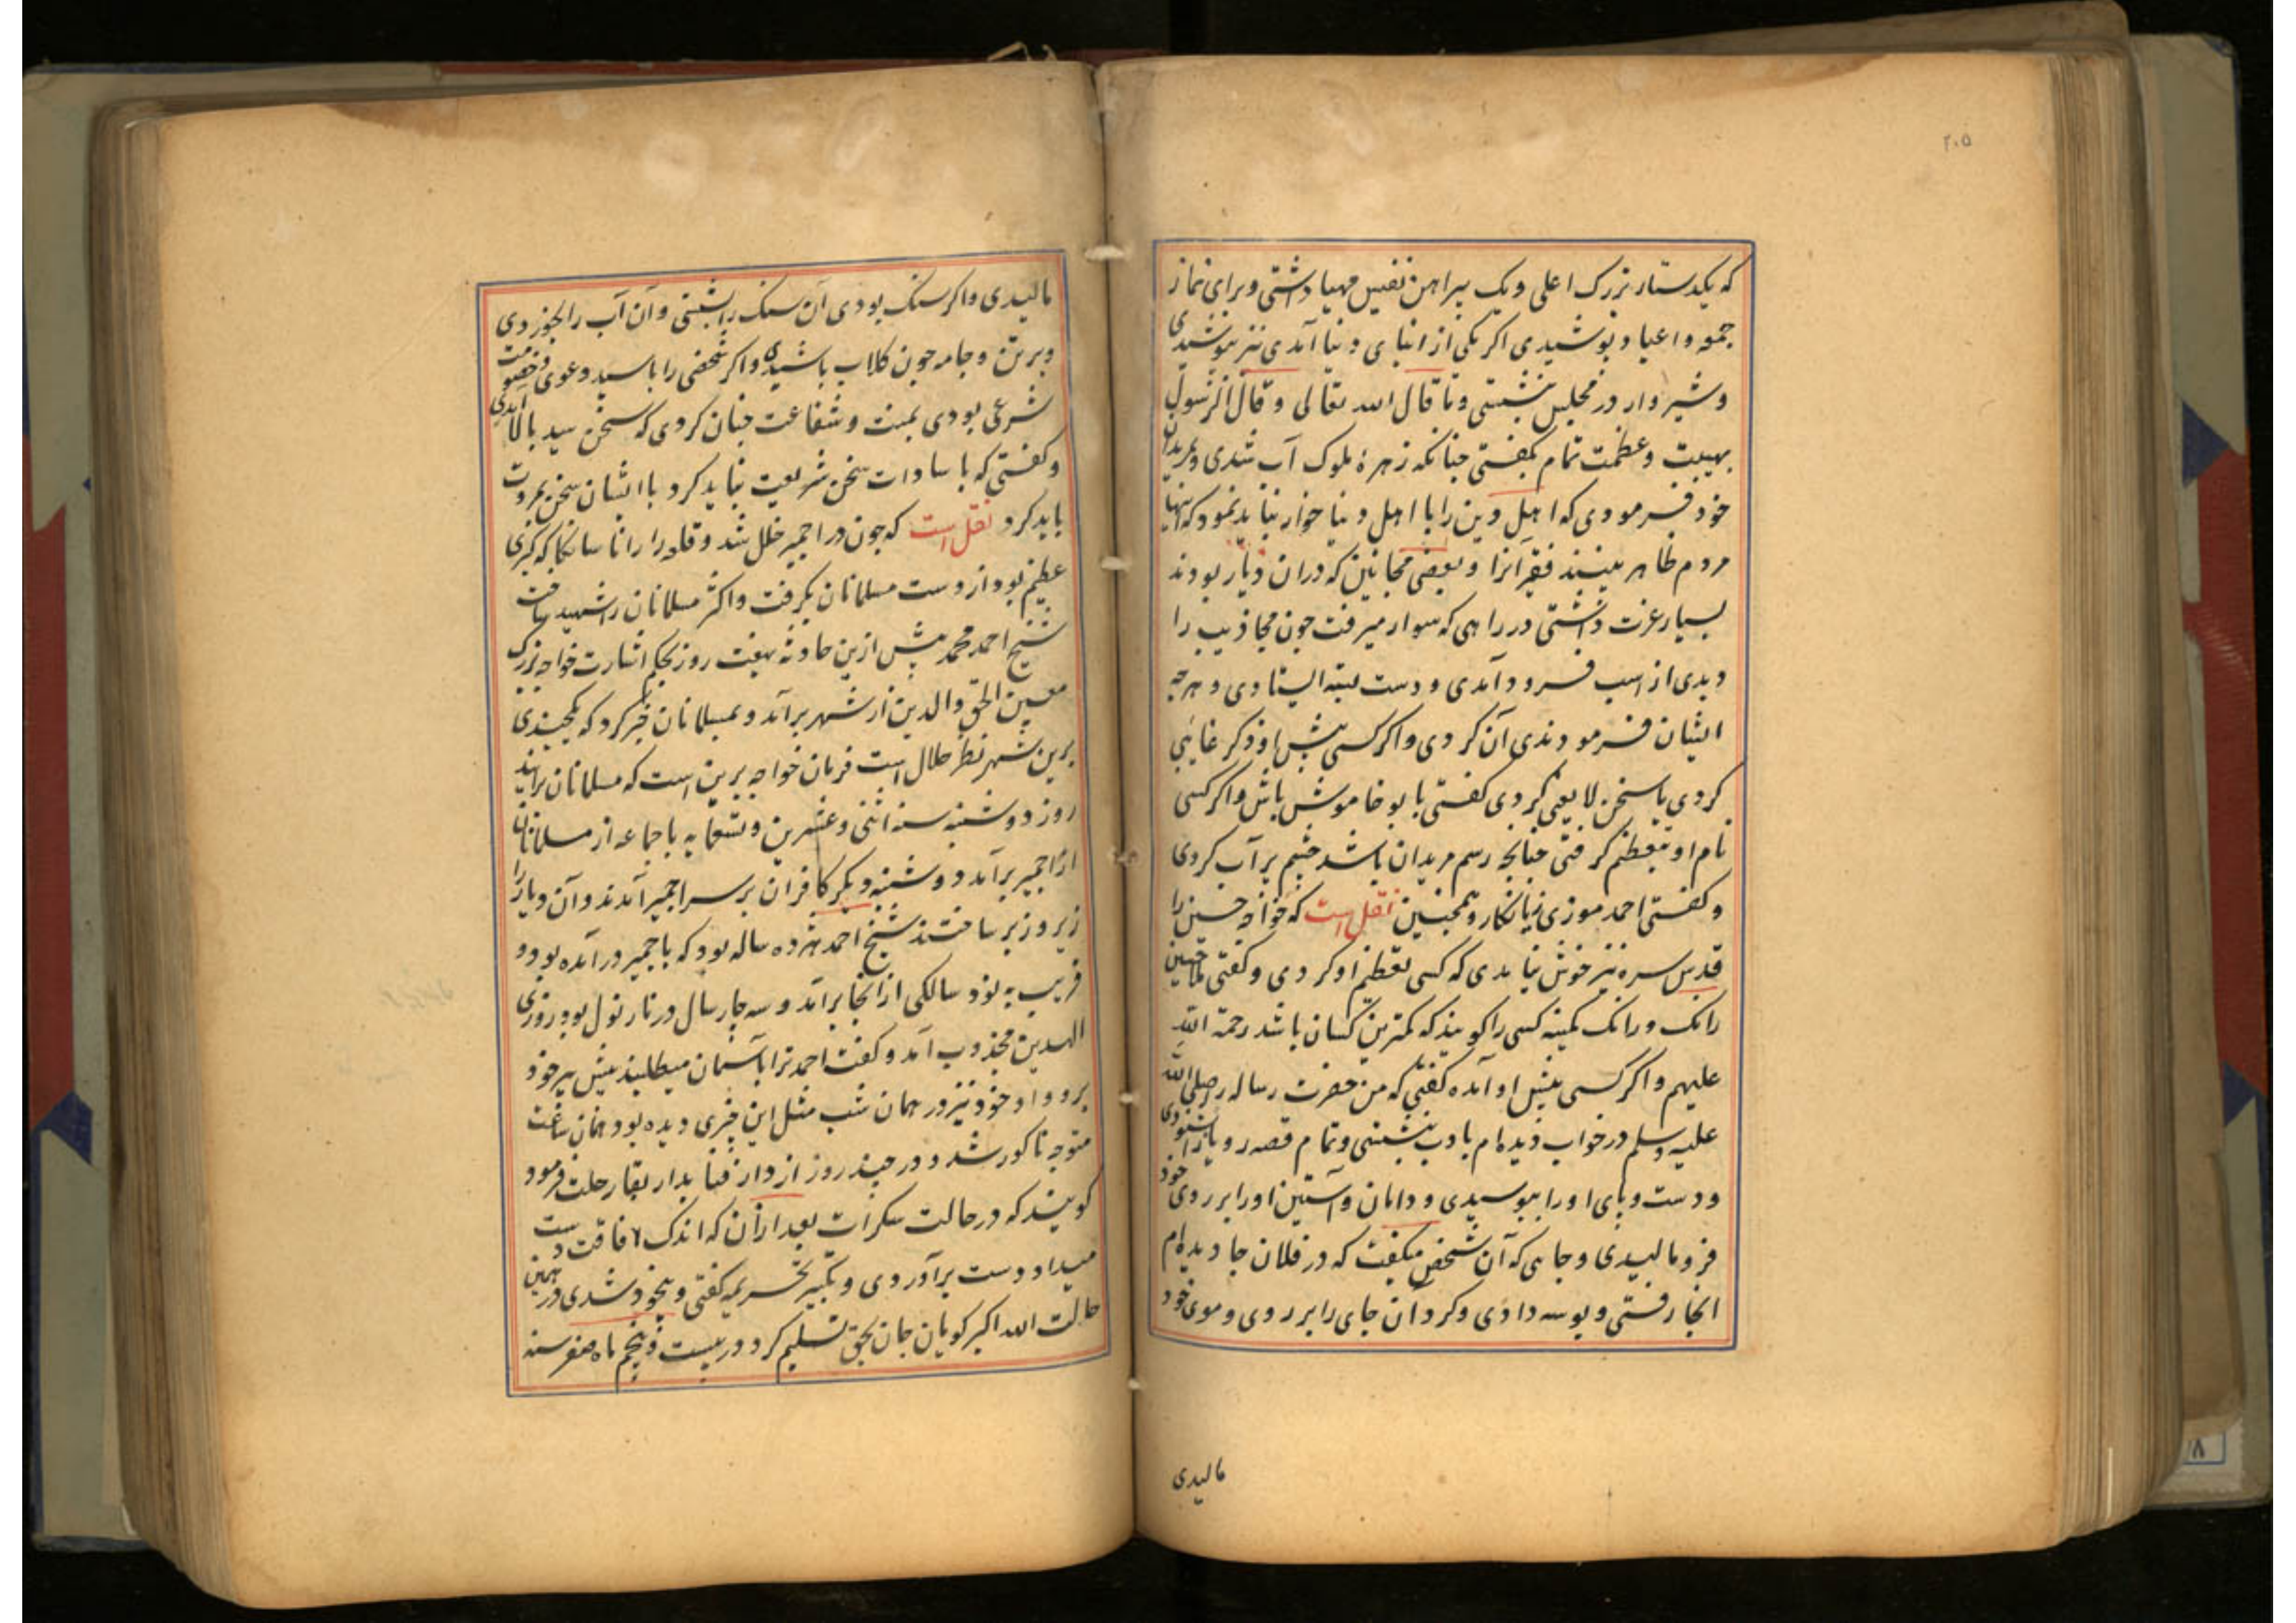 ۲۰۵
که یکدستار بزرک اعلی و یک پیراهن نفیس مهیا داشتی و برای نماز
جمعه و اعیاد پوشیدی اکر یکی از ابنای دنیا آمدی نیز پوشیدی
و شیروار در مجلس نشستی و تا قال الله تعالی و قال الرسول
بهیبت و عظمت تمام بکفتی چنانکه زهرۀ ملوک آب شدی و مریدان
خود فرمودی که اهل دین را با اهل دنیا خوار نباید نمود که اینها
مردم ظاهر بینند فقرا را و بعضی مجانین که دران دیار بودند
بسیار عزت داشتی در راهی که سوار میرفت چون مجاذیب را
دیدی از اسب فرود آمدی و دست بسته ایستادی و هرچه
ایشان فرمودندی آن کردی و اکر کسی پیش او ذکر غایبی
کردی یا سخن لایعنی کردی کفتی بابو خاموش باش و اکر کسی
نام او بتعظیم کرفتی چنانچه رسم مریدان باشد چشم پر آب کردی
و کفتی احمد موزی زیانکار و همچنین نقل است که خواجه حسین را
قدس سره نیز خوش نیامدی که کسی تعظیم او کردی و کفتی
رانک و رانک کمینه کسی را کویند که کمترین کسان باشد رحمة الله
علیهم و اکر کسی پیش او آمده کفتی که من حضرت رساله را صلی الله
علیه وسلم در خواب دیده ام بادب بنشستی و تمام قصه رویا را بشنودی
و دست و پای او را ببوسیدی و دامان و آستین او را بر روی خود
فرو مالیدی و جایی که آن شخص میکفت که در فلان جا دیده ام
انجا رفتی و بوسه دادی و کرد آن جای را بر روی و موی خود
مالیدی
مالیدی و اکر سنک بودی آن سنک را شستی و آن آب را بخوردی
و بر تن و جامه چون کلاب پاشیدی و اکر شخصی را با سید دعوی و خصومت
شرعی بودی بمنت و شفاعت چنان کردی که سخن سید بالا آمدی
و کفتی که با سادات سخن شریعت نباید کرد با ایشان سخن بمروت
باید کرد نقل است که چون در اجمیر خلل شد و قلعه را رانا سانکا که کبری
عظیم بود از دست مسلمانان بکرفت و اکثر مسلمانان را شهید ساخت
شیخ احمد مجد پیش ازین حادثه بهفت روز بحکم اشارت خواجه بزرک
معین الحق والدین از شهر برآمد و مسلمانان را خبر کرد که یکچندی
برین شهر نظر جلال است فرمان خواجه برین است که مسلمانان برآیند
روز دوشنبه سنه اثنی و عشرین و تسعمایه با جماعه از مسلمانان
از اجمیر برآمد دوشنبه دیکر کافران بر سر اجمیر آمدند و آن دیار را
زیر و زبر ساختند شیخ احمد هژده ساله بود که باجمیر درآمده بود و
قریب به نود سالکی از آنجا برآمد و سه چار سال در نارنول بود روزی
الهدین مجذوب آمد و کفت احمد ترا بآسمان میطلبند پیش پیر خود
برو و او خود نیز در همان شب مثل این چیزی دیده بود همان ساعت
متوجه ناکور شد و در چند روز از دار فنا بدار بقا رحلت فرمود
کویند که در حالت سکرات بعد ازان که اندک افاقت دست
میداد دست برآوردی و تکبیر تحریمه کفتی و بیخود شدی در همین
حالت الله اکبر کویان جان بحق تسلیم کرد در بیست و پنجم ماه صفر سنه